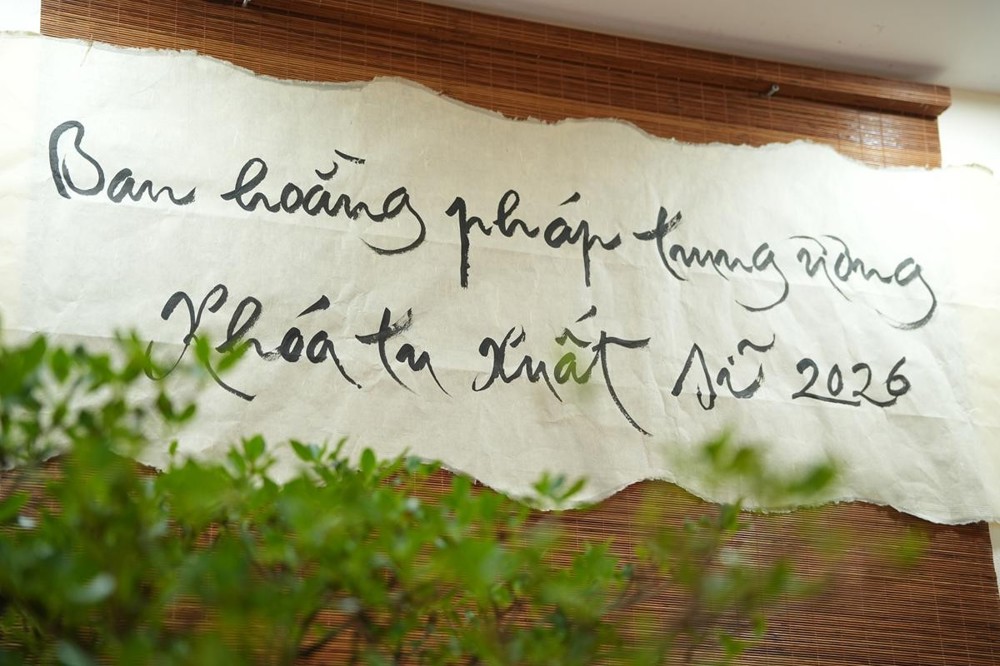 Ban hoằng pháp trung ương
Khóa tu Xuất sĩ 2026